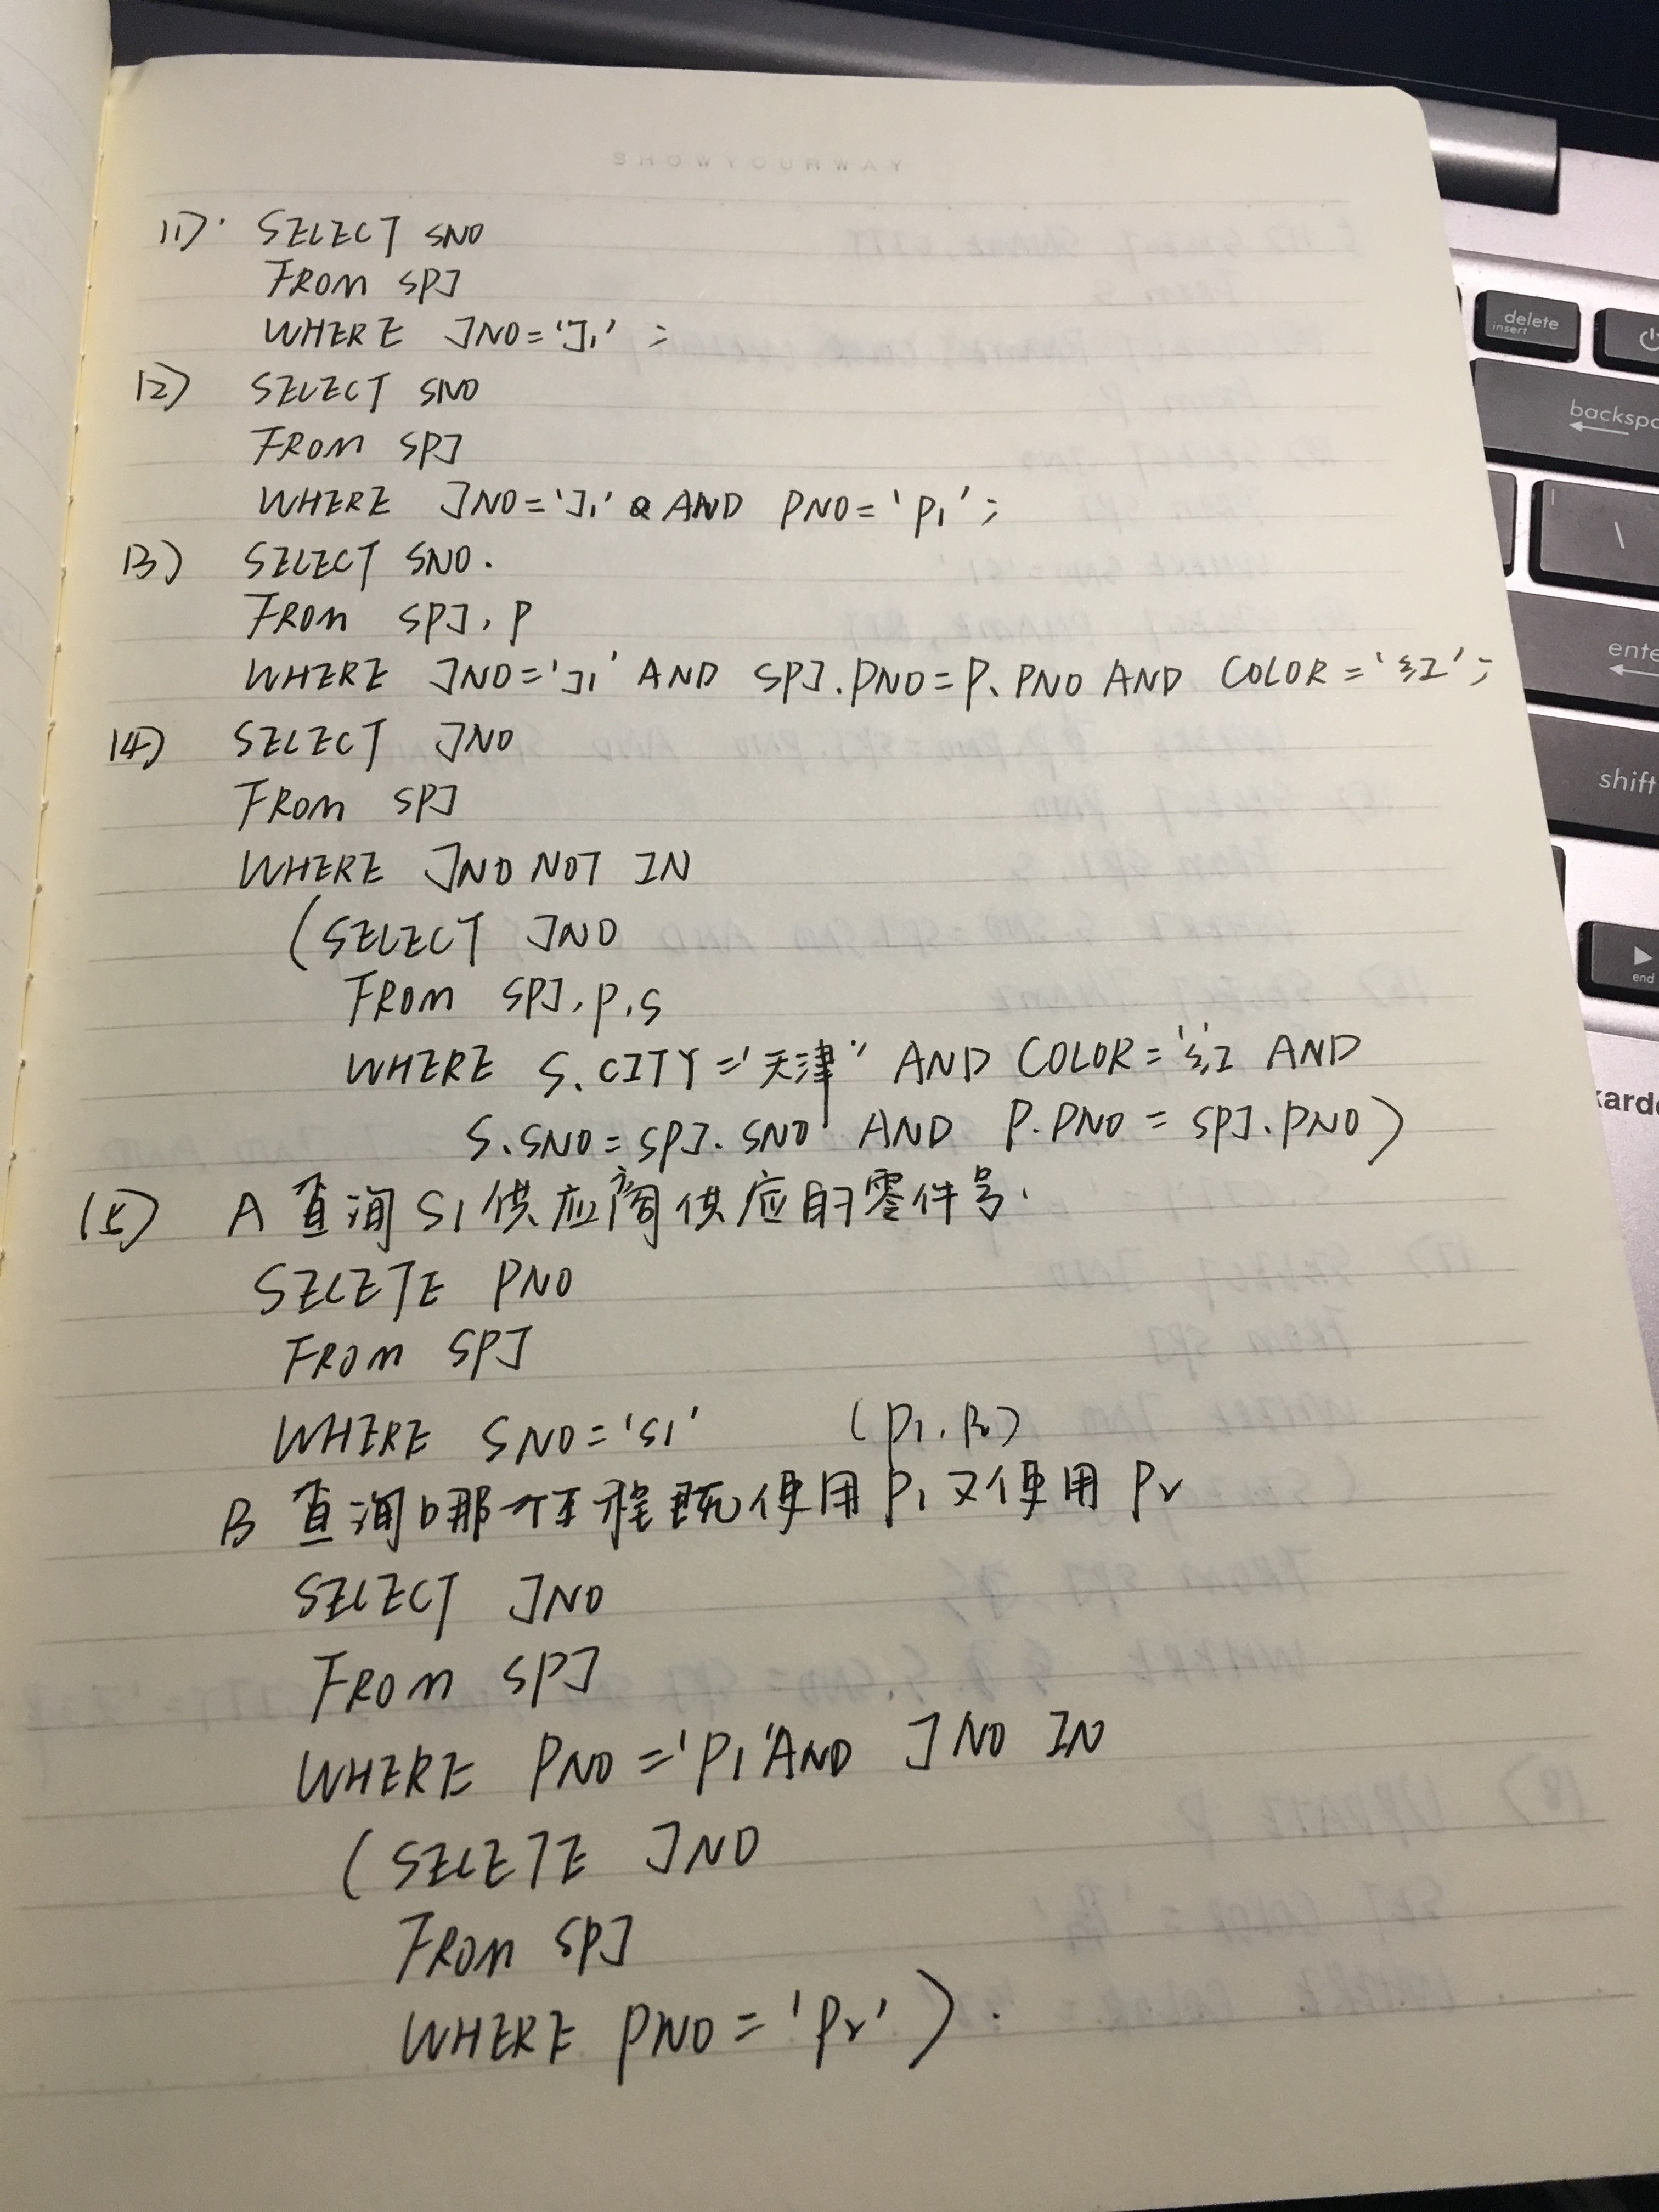 SHOWYOURWAY
(1). SELECT SNO
FROM SPJ
WHERE JNO='J1';
(2) SELECT SNO
FROM SPJ
WHERE JNO='J1' AND PNO='P1';
(3) SELECT SNO.
FROM SPJ, P
WHERE JNO='J1' AND SPJ.PNO=P.PNO AND COLOR='红';
(4) SELECT JNO
FROM SPJ
WHERE JNO NOT IN
(SELECT JNO
FROM SPJ,P,S
WHERE S.CITY='天津' AND COLOR='红 AND
S.SNO=SPJ.SNO AND P.PNO=SPJ.PNO)
(5) A 查询S1供应商供应的零件号.
SELETE PNO
FROM SPJ
WHERE SNO='S1' (P1,P2)
B 查询哪个工程既使用P1又使用P2
SELECT JNO
FROM SPJ
WHERE PNO='P1'AND JNO IN
(SELETE JNO
FROM SPJ
WHERE PNO='P2').
delete
insert
backspa
\
ente
shift
end
karda